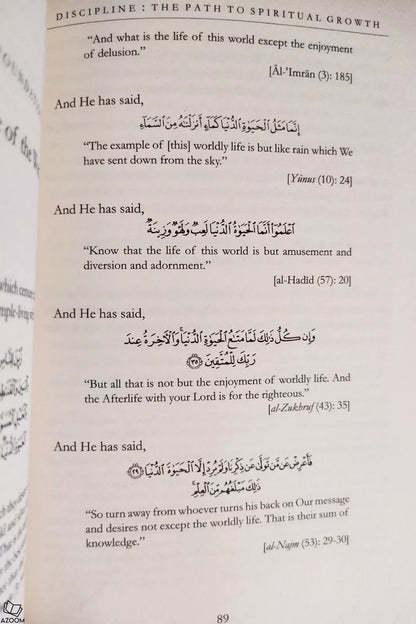 DISCIPLINE : THE PATH TO SPIRITUAL GROWTH
“And what is the life of this world except the enjoyment
of delusion.”
[Āl-‘Imrān (3): 185]
And He has said,
إِنَّمَا مَثَلُ الْحَيَوٰةِ الدُّنْيَا كَمَاءٍ أَنزَلْنَٰهُ مِنَ السَّمَاءِ
“The example of [this] worldly life is but like rain which We
have sent down from the sky.”
[Yūnus (10): 24]
And He has said,
اعْلَمُوٓا أَنَّمَا الْحَيَوٰةُ الدُّنْيَا لَعِبٌ وَلَهْوٌ وَزِينَةٌ
“Know that the life of this world is but amusement and
diversion and adornment.”
[al-Hadīd (57): 20]
And He has said,
وَإِن كُلُّ ذَٰلِكَ لَمَّا مَتَٰعُ الْحَيَوٰةِ الدُّنْيَا ۚ وَالْآخِرَةُ عِندَ
رَبِّكَ لِلْمُتَّقِينَ ﴿٣٥﴾
“But all that is not but the enjoyment of worldly life. And
the Afterlife with your Lord is for the righteous.”
[al-Zukhruf (43): 35]
And He has said,
فَأَعْرِضْ عَن مَّن تَوَلَّىٰ عَن ذِكْرِنَا وَلَمْ يُرِدْ إِلَّا الْحَيَوٰةَ الدُّنْيَا ﴿٢٩﴾
ذَٰلِكَ مَبْلَغُهُم مِّنَ الْعِلْمِ ۚ
“So turn away from whoever turns his back on Our message
and desires not except the worldly life. That is their sum of
knowledge.”
[al-Najm (53): 29-30]
89
AZOOM